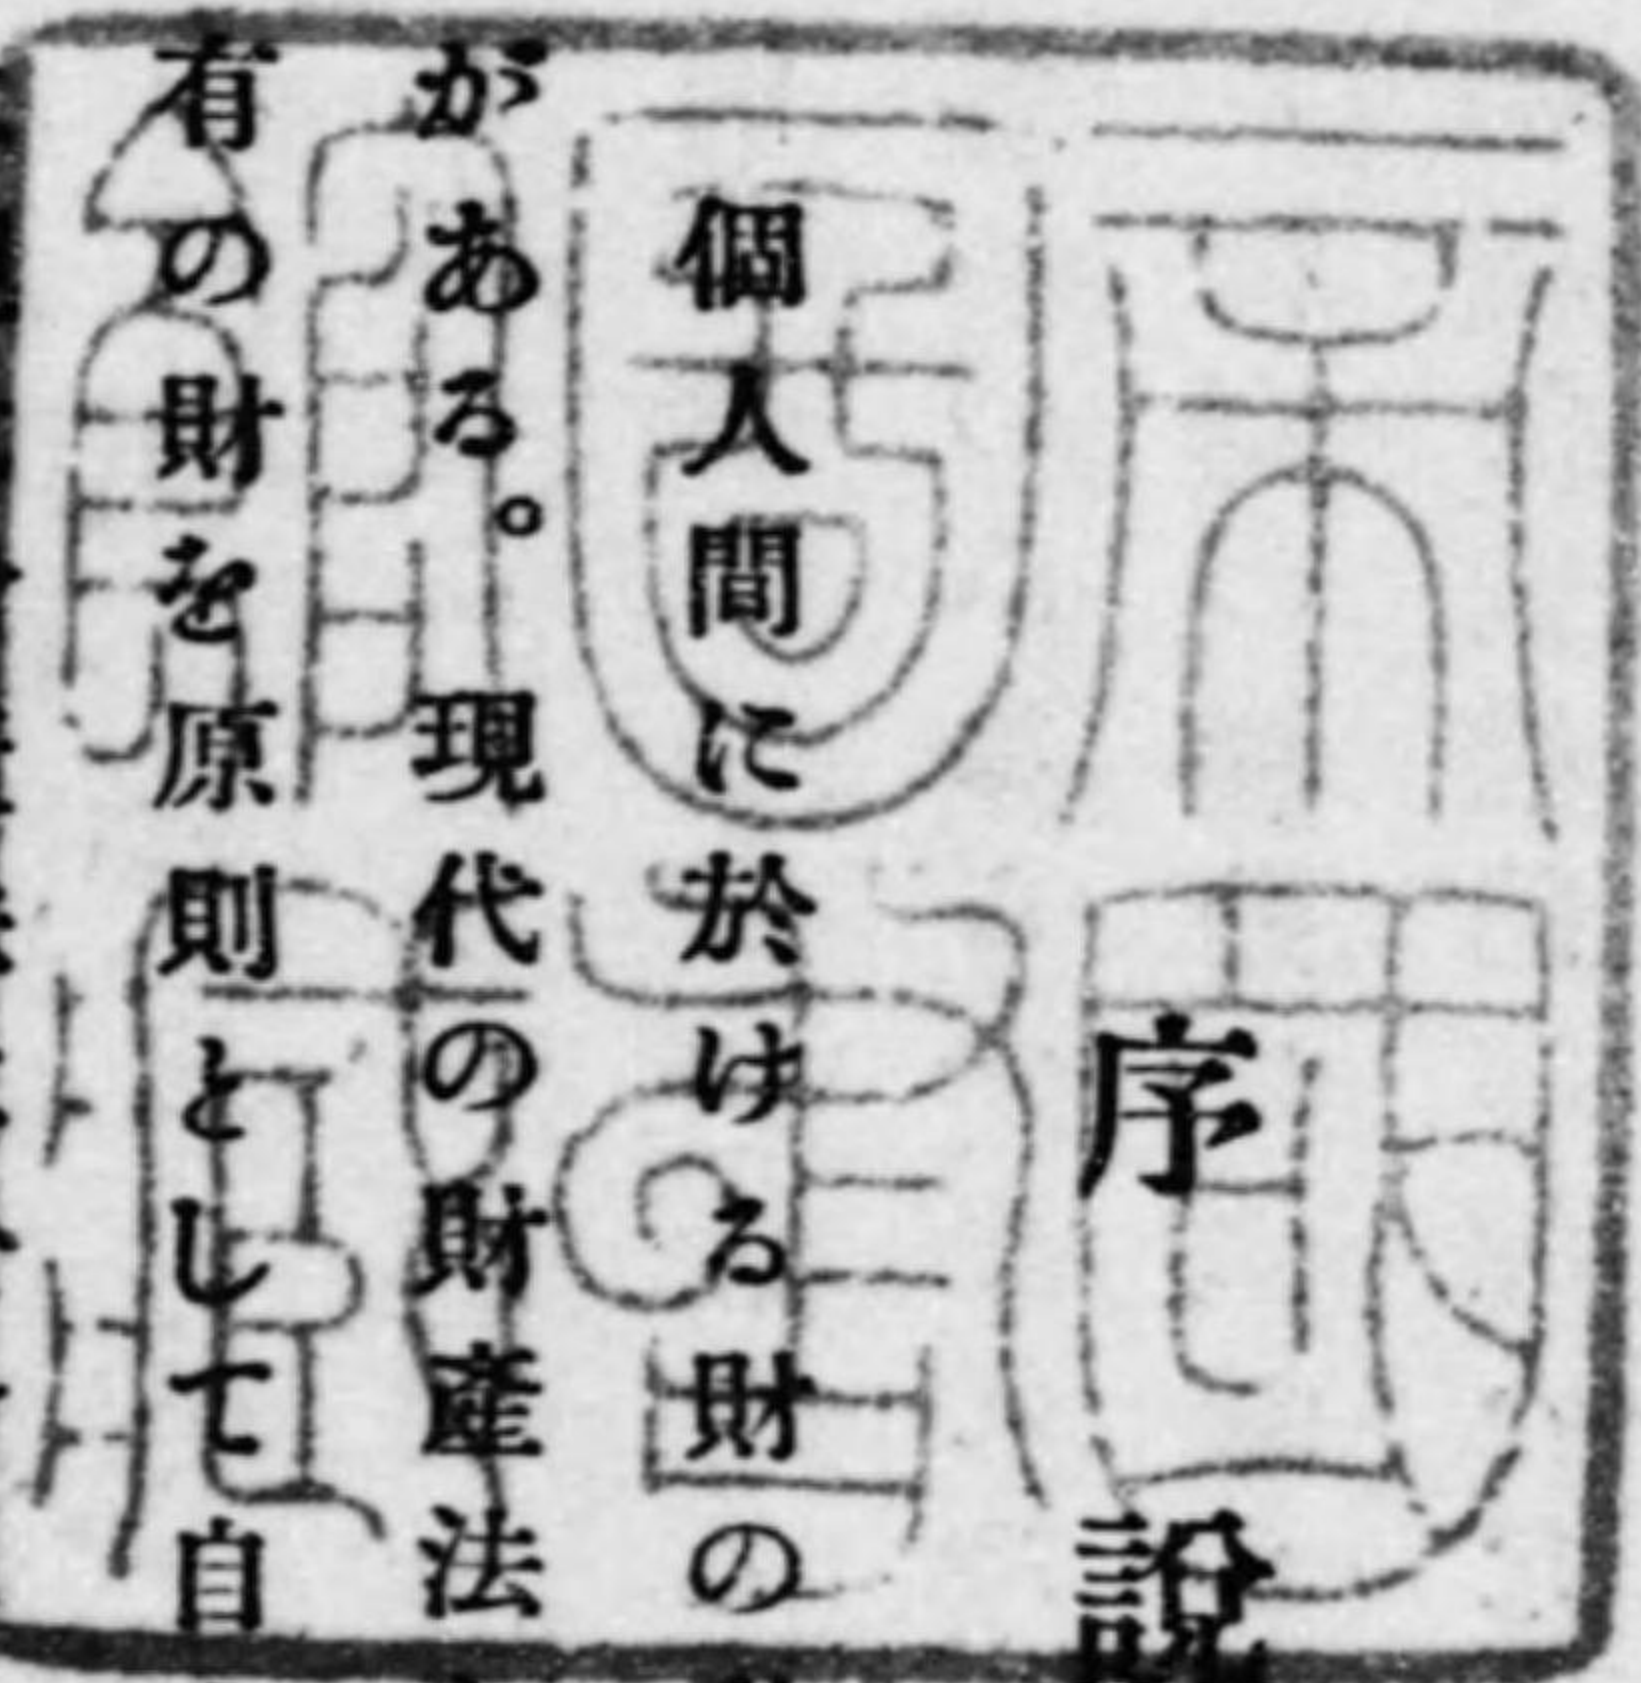 帝國
圖書
館藏
序說
個人間に於ける財の
がある。現代の財産法
有の財を原則として自